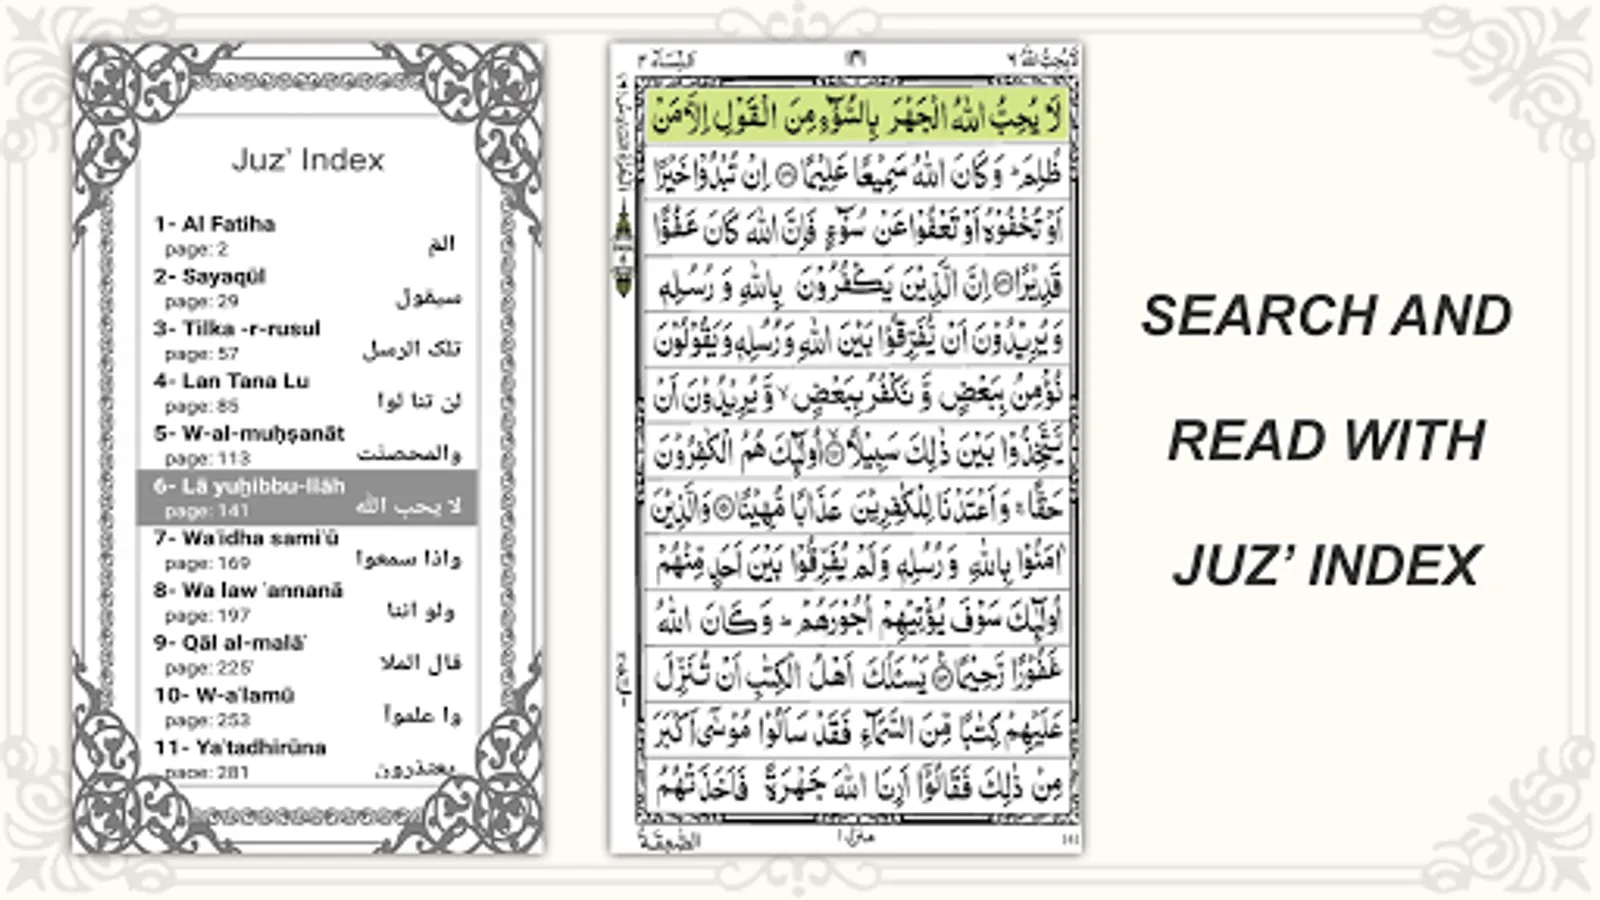 Juz’ Index
1- Al Fatiha
page: 2
الم
2- Sayaqūl
page: 29
سيقول
3- Tilka -r-rusul
page: 57
تلک الرسل
4- Lan Tana Lu
page: 85
لن تنا لوا
5- W-al-muḥṣanāt
page: 113
والمحصنت
6- Lā yuḥibbu-llāh
page: 141
لا يحب الله
7- Wa'idha sami'ū
page: 169
واذا سمعوا
8- Wa law 'annanā
page: 197
ولو اننا
9- Qāl al-malā'
page: 225'
قال الملا
10- W-a'lamū
page: 253
وا علموآ
11- Ya'tadhirūna
page: 281
يعتذرون
لَا يُحِبُّ اللّٰهُ الْجَهْرَ بِالسُّوْٓءِ مِنَ الْقَوْلِ اِلَّا مَنْ
ظُلِمَ ؕ وَكَانَ اللّٰهُ سَمِيْعًا عَلِيْمًا اِنْ تُبْدُوْا خَيْرًا
اَوْ تُخْفُوْهُ اَوْ تَعْفُوْا عَنْ سُوْٓءٍ فَاِنَّ اللّٰهَ كَانَ عَفُوًّا
قَدِيْرًا اِنَّ الَّذِيْنَ يَكْفُرُوْنَ بِاللّٰهِ وَ رُسُلِهٖ
وَيُرِيْدُوْنَ اَنْ يُّفَرِّقُوْا بَيْنَ اللّٰهِ وَرُسُلِهٖ وَيَقُوْلُوْنَ
نُؤْمِنُ بِبَعْضٍ وَّ نَكْفُرُ بِبَعْضٍ ۙ وَّ يُرِيْدُوْنَ اَنْ
يَّتَّخِذُوْا بَيْنَ ذٰلِكَ سَبِيْلًا اُولٰٓئِكَ هُمُ الْكٰفِرُوْنَ
حَقًّا ۚ وَاَعْتَدْنَا لِلْكٰفِرِيْنَ عَذَابًا مُّهِيْنًا وَالَّذِيْنَ
اٰمَنُوْا بِاللّٰهِ وَ رُسُلِهٖ وَلَمْ يُفَرِّقُوْا بَيْنَ اَحَدٍ مِّنْهُمْ
اُولٰٓئِكَ سَوْفَ يُؤْتِيْهِمْ اُجُوْرَهُمْ ؕ وَكَانَ اللّٰهُ
غَفُوْرًا رَّحِيْمًا يَسْـَٔلُكَ اَهْلُ الْكِتٰبِ اَنْ تُنَزِّلَ
عَلَيْهِمْ كِتٰبًا مِّنَ السَّمَآءِ فَقَدْ سَاَلُوْا مُوْسٰٓى اَكْبَرَ
مِنْ ذٰلِكَ فَقَالُوْٓا اَرِنَا اللّٰهَ جَهْرَةً فَاَخَذَتْهُمُ
SEARCH AND
READ WITH
JUZ’ INDEX